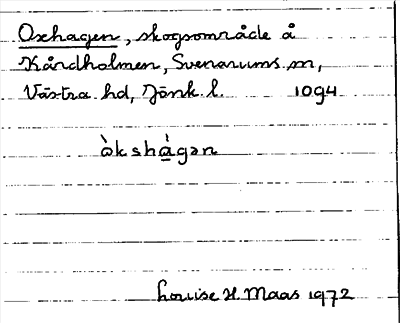 Oxhagen, skogsområde å
Kårdholmen, Svenarums sn,
Västra hd, Jönk. l. 1094
òkshàgən
Louise H. Maas 1972